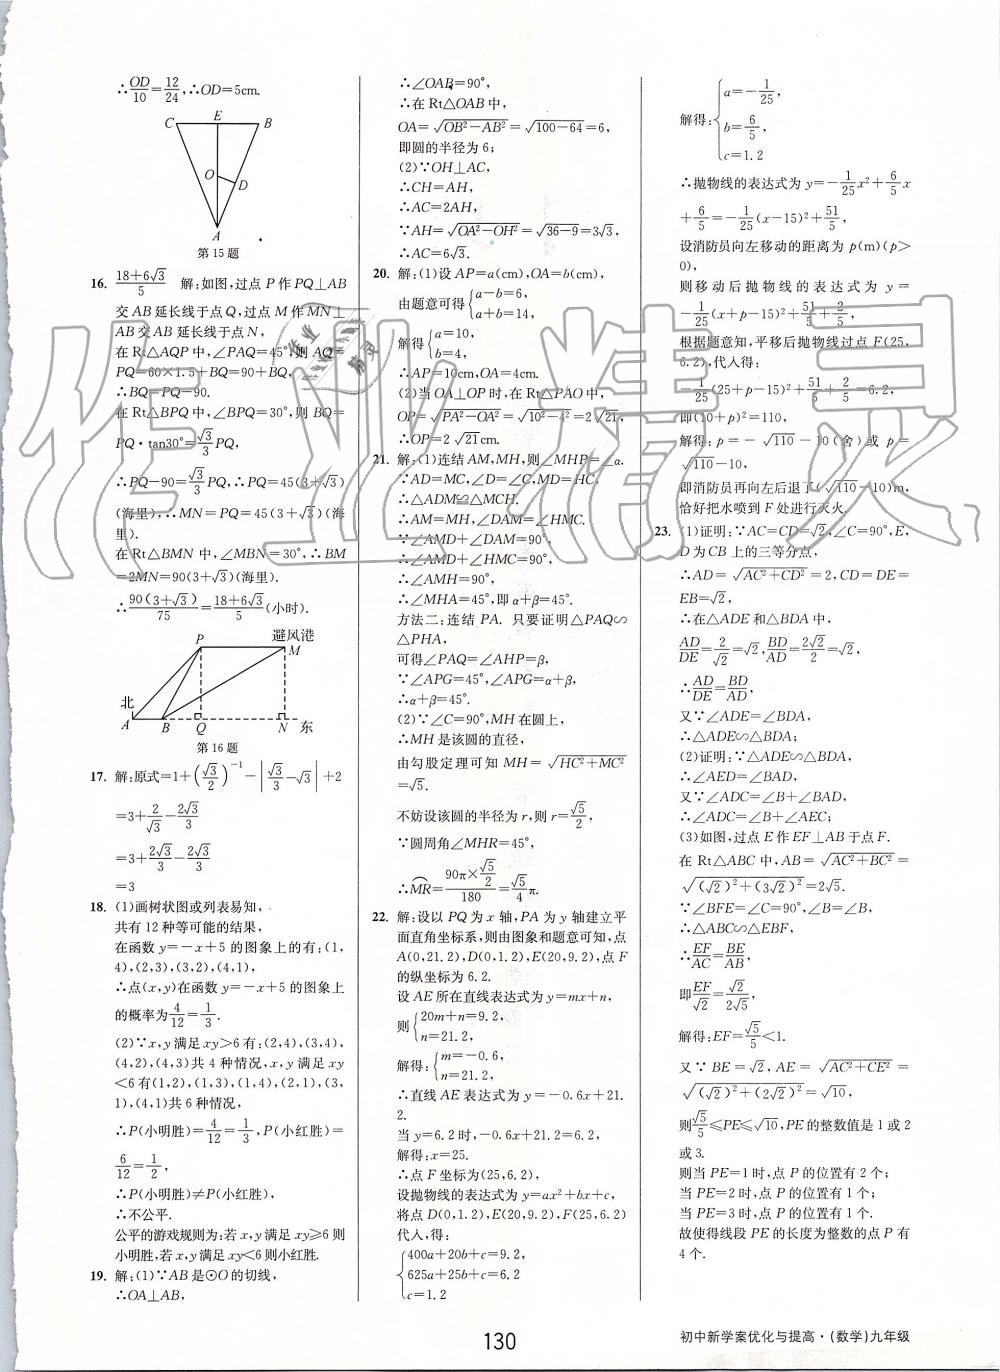 ∴OD/10=12/24,∴OD=5cm.
C E B
O
D
A
第15题
16. (18+6√3)/5 解:如图,过点 P 作 PQ⊥AB
交 AB 延长线于点 Q,过点 M 作 MN⊥
AB 交 AB 延长线于点 N,
在 Rt△AQP 中,∠PAQ=45°,则 AQ=
PQ=60×1.5+BQ=90+BQ,
∴BQ=PQ-90.
在 Rt△BPQ 中,∠BPQ=30°,则 BQ=
PQ·tan30°=√3/3 PQ,
∴PQ-90=√3/3 PQ,∴PQ=45(3+√3)
(海里),∴MN=PQ=45(3+√3)(海
里).
在 Rt△BMN 中,∠MBN=30°,∴BM
=2MN=90(3+√3)(海里).
∴90(3+√3)/75=(18+6√3)/5(小时).
P 避风港
M
北
A B Q N 东
第16题
17. 解:原式=1+(√3/2)⁻¹-|√3/3-√3|+2
=3+2/√3-2√3/3
=3+2√3/3-2√3/3
=3
18. (1)画树状图或列表易知,
共有 12 种等可能的结果,
在函数 y=-x+5 的图象上的有:(1,
4),(2,3),(3,2),(4,1),
∴点(x,y)在函数 y=-x+5 的图象上
的概率为4/12=1/3.
(2)∵x,y 满足 xy>6 有:(2,4),(3,4),
(4,2),(4,3)共 4 种情况,x,y 满足 xy
<6 有(1,2),(1,3),(1,4),(2,1),(3,
1),(4,1)共 6 种情况,
∴P(小明胜)=4/12=1/3,P(小红胜)=
6/12=1/2,
∴P(小明胜)≠P(小红胜),
∴不公平.
公平的游戏规则为:若 x,y 满足 xy≥6 则
小明胜,若 x,y 满足 xy<6 则小红胜.
19. 解:(1)∵AB 是⊙O 的切线,
∴OA⊥AB,
∴∠OAB=90°,
∴在 Rt△OAB 中,
OA=√(OB²-AB²)=√(100-64)=6,
即圆的半径为 6;
(2)∵OH⊥AC,
∴CH=AH,
∴AC=2AH,
∵AH=√(OA²-OH²)=√(36-9)=3√3,
∴AC=6√3.
20. 解:(1)设 AP=a(cm),OA=b(cm),
由题意可得{a-b=6,
a+b=14,
解得{a=10,
b=4,
∴AP=10cm,OA=4cm.
(2)当 OA⊥OP 时,在 Rt△PAO 中,
OP=√(PA²-OA²)=√(10²-4²)=2√21,
∴OP=2√21cm.
21. 解:(1)连结 AM,MH,则∠MHP=∠α.
∵AD=MC,∠D=∠C,MD=HC,
∴△ADM≌△MCH.
∴AM=MH,∠DAM=∠HMC.
∵∠AMD+∠DAM=90°,
∴∠AMD+∠HMC=90°,
∴∠AMH=90°,
∴∠MHA=45°,即 α+β=45°.
方法二:连结 PA. 只要证明△PAQ∽
△PHA,
可得∠PAQ=∠AHP=β,
∵∠APG=45°,∠APG=α+β,
∴α+β=45°.
(2)∵∠C=90°,MH 在圆上,
∴MH 是该圆的直径,
由勾股定理可知 MH=√(HC²+MC²)
=√5.
不妨设该圆的半径为 r,则 r=√5/2,
∵圆周角∠MHR=45°,
∴⌒MR=(90π×√5/2)/180=√5/4 π.
22. 解:设以 PQ 为 x 轴,PA 为 y 轴建立平
面直角坐标系,则由图象和题意可知,点
A(0,21.2),D(0,1.2),E(20,9.2),点 F
的纵坐标为 6.2.
设 AE 所在直线表达式为 y=mx+n,
则{20m+n=9.2,
n=21.2,
解得:{m=-0.6,
n=21.2,
∴直线 AE 表达式为 y=-0.6x+21.
2.
当 y=6.2 时,-0.6x+21.2=6.2,
解得:x=25.
∴点 F 坐标为(25,6.2),
设抛物线的表达式为 y=ax²+bx+c,
将点 D(0,1.2),E(20,9.2),F(25,6.2)
代入,得:
{400a+20b+c=9.2,
625a+25b+c=6.2
c=1.2
解得:{a=-1/25,
b=6/5,
c=1.2
∴抛物线的表达式为 y=-1/25x²+6/5x
+6/5=-1/25(x-15)²+51/5,
设消防员向左移动的距离为 p(m)(p>
0),
则移动后抛物线的表达式为 y=
-1/25(x+p-15)²+51/5+2/5,
根据题意知,平移后抛物线过点 F(25,
6.2),代入得:
-1/25(25+p-15)²+51/5+2/5=6.2,
即(10+p)²=110,
解得:p=-√110-10(舍)或 p=
√110-10,
即消防员再向左后退了(√110-10)m,
恰好把水喷到 F 处进行灭火.
23. (1)证明:∵AC=CD=√2,∠C=90°,E,
D 为 CB 上的三等分点,
∴AD=√(AC²+CD²)=2,CD=DE=
EB=√2,
∴在△ADE 和△BDA 中,
AD/DE=2/√2=√2,BD/AD=2√2/2=√2,
∴AD/DE=BD/AD,
又∵∠ADE=∠BDA,
∴△ADE∽△BDA;
(2)证明:∵△ADE∽△BDA,
∴∠AED=∠BAD,
又∵∠ADC=∠B+∠BAD,
∴∠ADC=∠B+∠AEC;
(3)如图,过点 E 作 EF⊥AB 于点 F.
在 Rt△ABC 中,AB=√(AC²+BC²)=
√((√2)²+(3√2)²)=2√5.
∵∠BFE=∠C=90°,∠B=∠B,
∴△ABC∽△EBF,
∴EF/AC=BE/AB,
即EF/√2=√2/2√5,
解得:EF=√5/5<1.
又∵BE=√2,AE=√(AC²+CE²)=
√((√2)²+(2√2)²)=√10,
则√5/5≤PE≤√10,PE 的整数值是 1 或 2
或 3.
则当 PE=1 时,点 P 的位置有 2 个;
当 PE=2 时,点 P 的位置有 1 个;
当 PE=3 时,点 P 的位置有 1 个.
故使得线段 PE 的长度为整数的点 P 有
4 个.
作业精灵
作业
精灵
130
初中新学案优化与提高·(数学)九年级